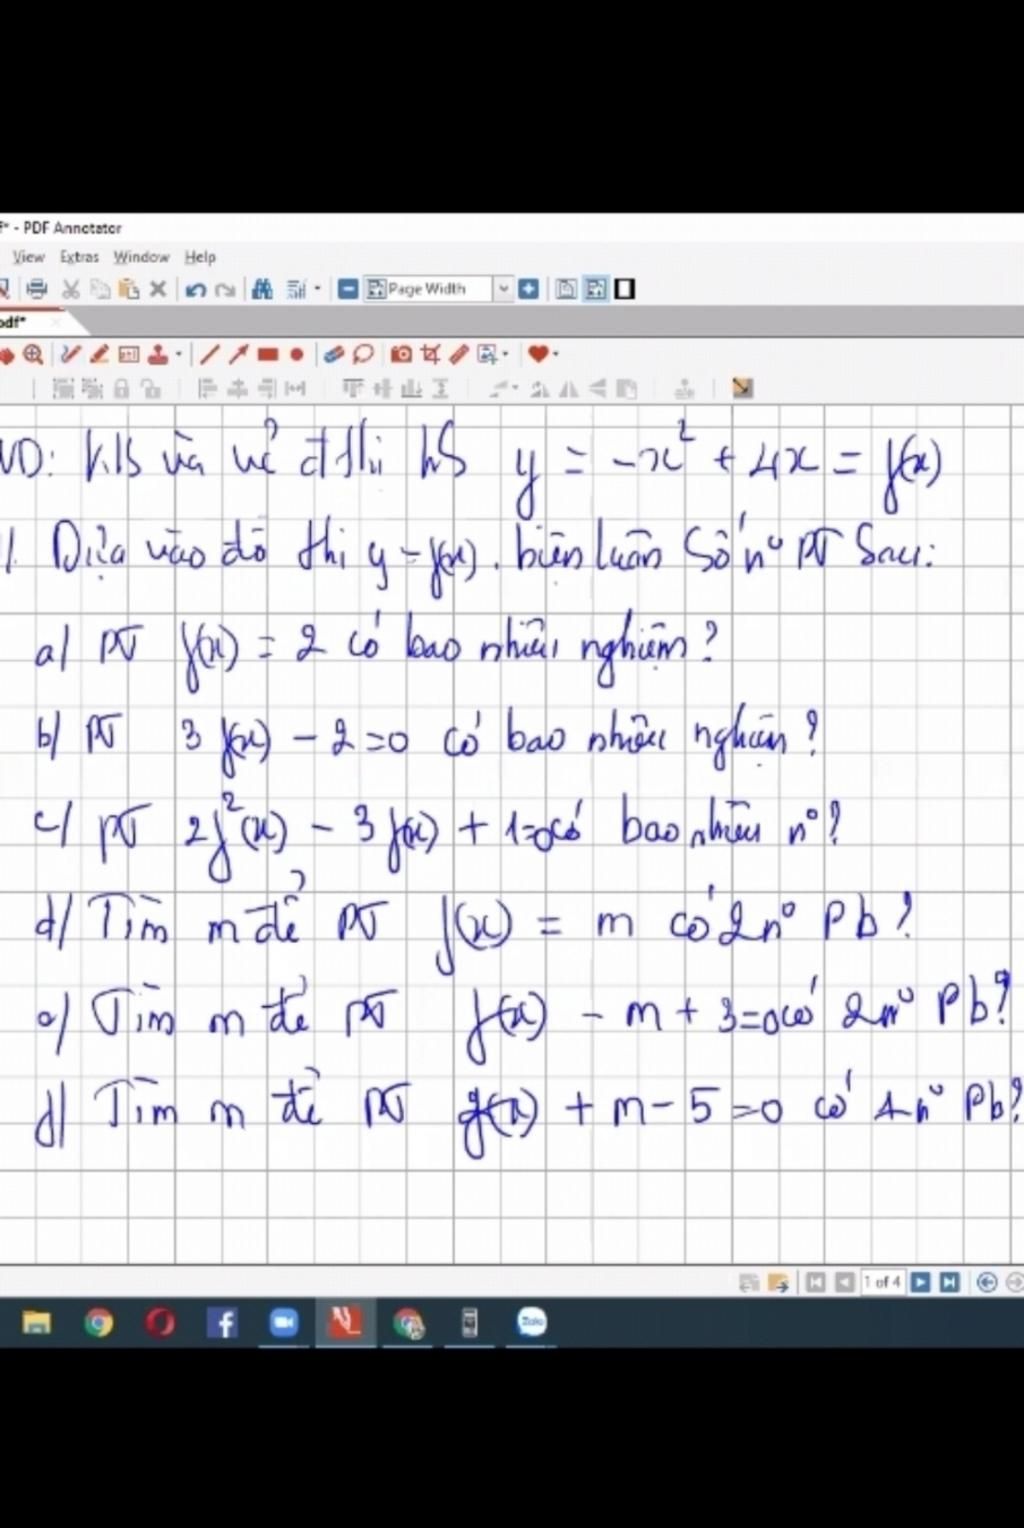 f* - PDF Annotator
View Extras Window Help
Page Width
pdf*
VD: KS và vẽ đ thị hS y = -x² + 4x = f(x)
1. Dựa vào đồ thị y = f(x). biện luận Số nº PT Sau:
a/ PT f(x) = 2 có bao nhiêu nghiệm?
b/ PT 3 f(x) - 2 = 0 có bao nhiêu nghiệm?
c/ PT 2f²(x) - 3f(x) + 1 = 0 có bao nhiêu nº?
d/ Tìm m để PT f(x) = m có 2nº Pb?
e/ Tìm m để PT f(x) - m + 3 = 0 có 2nº Pb?
f/ Tìm m để PT f(x) + m - 5 = 0 có 1nº Pb?
1 of 4
Zalo